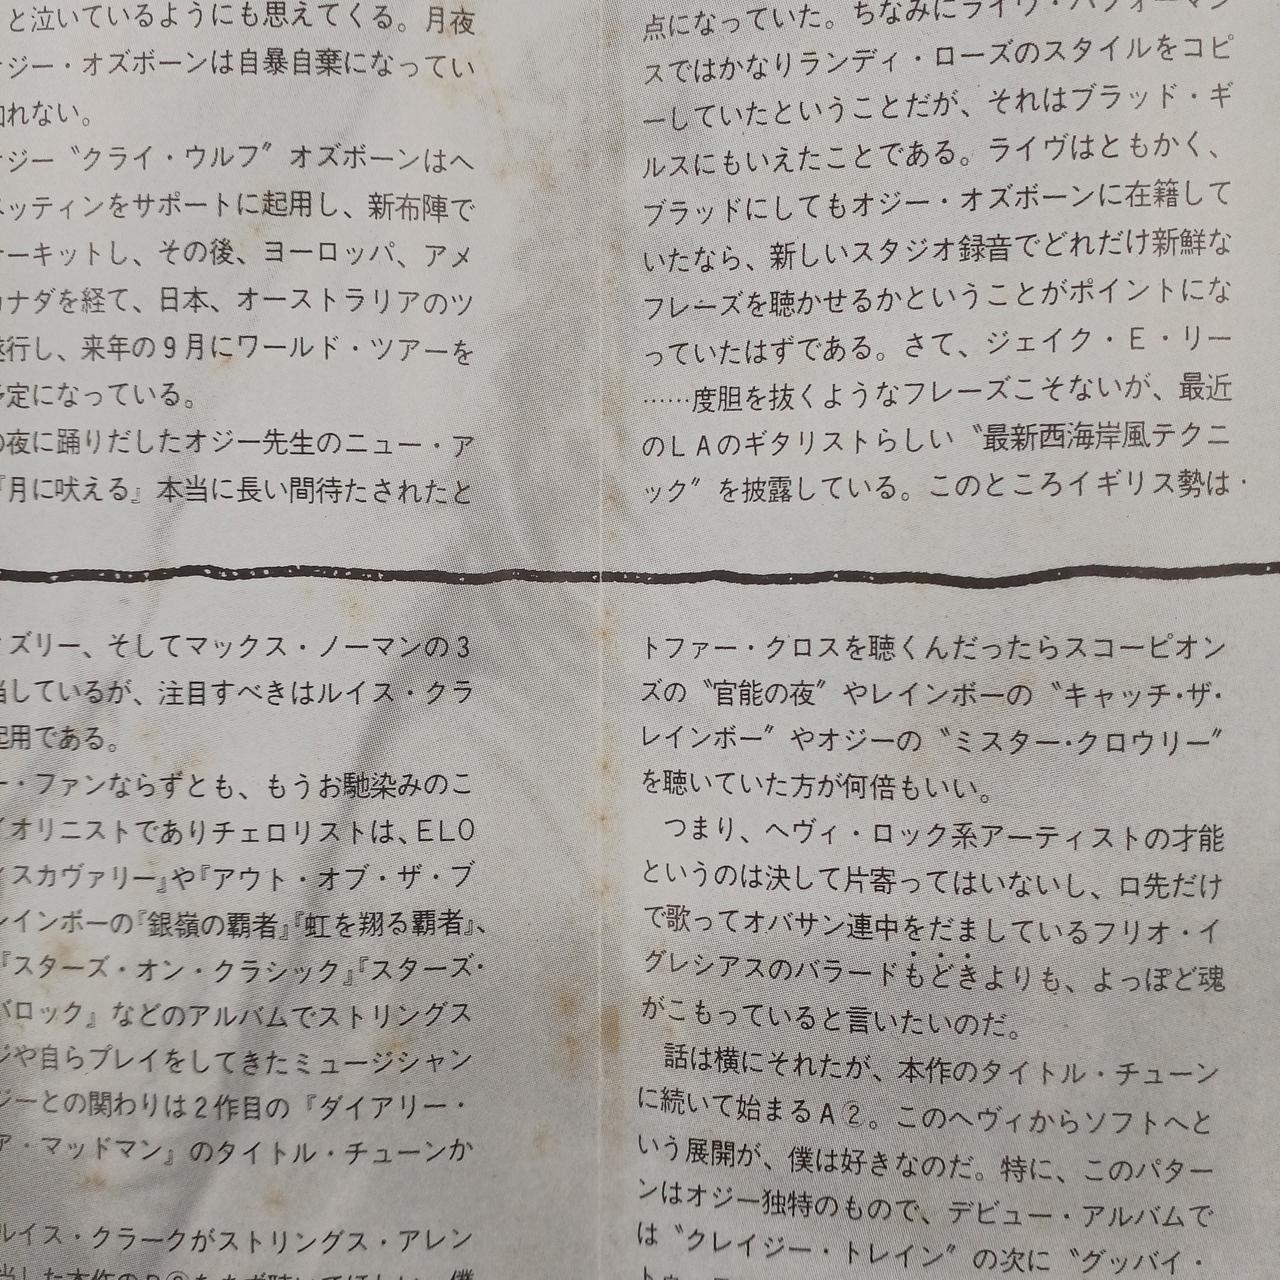 と泣いているようにも思えてくる。月夜
ジー・オズボーンは自暴自棄になってい
れない。
ジー〝クライ・ウルフ〟オズボーンはヘ
ッティンをサポートに起用し、新布陣で
ーキットし、その後、ヨーロッパ、アメ
ナダを経て、日本、オーストラリアのツ
行し、来年の9月にワールド・ツアーを
定になっている。
夜に踊りだしたオジー先生のニュー・ア
『月に吠える』本当に長い間待たされたと
点になっていた。ちなみにライヴ・パフォーマン
スではかなりランディ・ローズのスタイルをコピ
ーしていたということだが、それはブラッド・ギ
ルスにもいえたことである。ライヴはともかく、
ブラッドにしてもオジー・オズボーンに在籍して
いたなら、新しいスタジオ録音でどれだけ新鮮な
フレーズを聴かせるかということがポイントにな
っていたはずである。さて、ジェイク・E・リー
……度胆を抜くようなフレーズこそないが、最近
のLAのギタリストらしい〝最新西海岸風テクニ
ック〟を披露している。このところイギリス勢は・
ズリー、そしてマックス・ノーマンの3
しているが、注目すべきはルイス・クラ
起用である。
ー・ファンならずとも、もうお馳染みのこ
オリニストでありチェロリストは、ELO
スカヴァリー』や『アウト・オブ・ザ・ブ
インボーの『銀嶺の覇者』『虹を翔る覇者』、
『スターズ・オン・クラシック』『スターズ・
バロック』などのアルバムでストリングス
ジや自らプレイをしてきたミュージシャン
ジーとの関わりは2作目の『ダイアリー・
ア・マッドマン』のタイトル・チューンか
ルイス・クラークがストリングス・アレン
トファー・クロスを聴くんだったらスコーピオン
ズの〝官能の夜〟やレインボーの〝キャッチ・ザ・
レインボー〟やオジーの〝ミスター・クロウリー〟
を聴いていた方が何倍もいい。
つまり、ヘヴィ・ロック系アーティストの才能
というのは決して片寄ってはいないし、口先だけ
で歌ってオバサン連中をだましているフリオ・イ
グレシアスのバラードもどきよりも、よっぽど魂
がこもっていると言いたいのだ。
話は横にそれたが、本作のタイトル・チューン
に続いて始まるA②。このヘヴィからソフトへと
いう展開が、僕は好きなのだ。特に、このパター
ンはオジー独特のもので、デビュー・アルバムで
は〝クレイジー・トレイン〟の次に〝グッバイ・